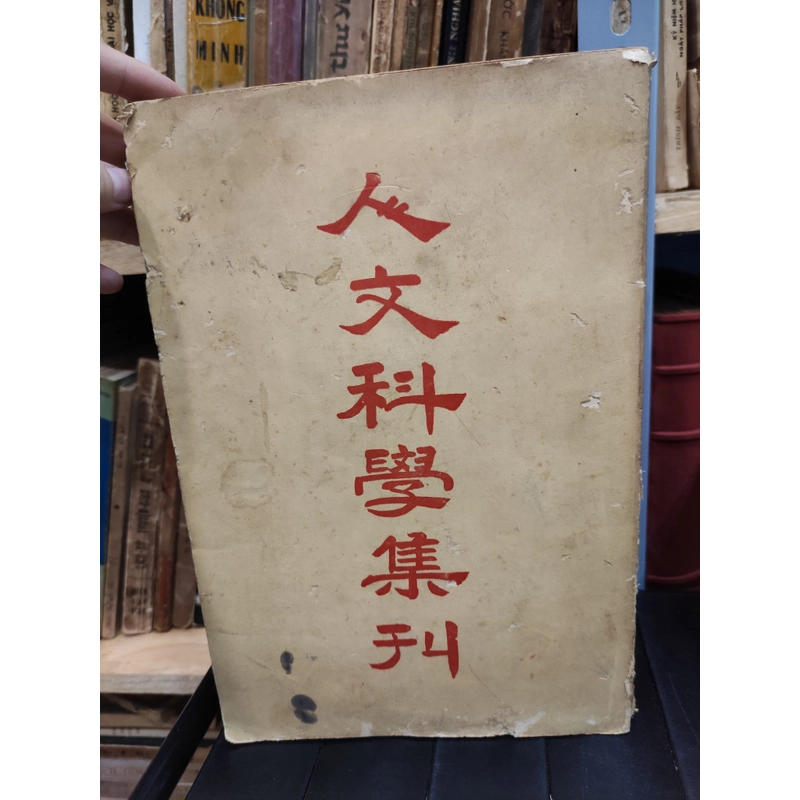 人文科學集刊
KHÔNG
MINH
thư